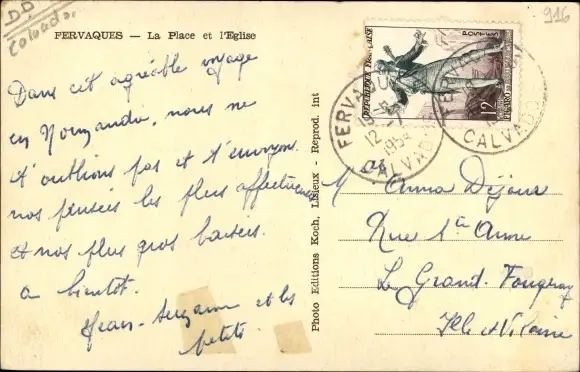 D.D
Calvados
916
FERVAQUES — La Place et l'Eglise
Dans cet agréable voyage
en Normandie, nous ne
t'oublions pas et t'envoyons
nos pensées les plus affectueuses
et nos plus gros baisers.
a bientôt.
Jean - Suzanne et les
petits.
Photo Editions Koch, Lisieux - Reprod. int
REPUBLIQUE FRANÇAISE
POSTES
12F
FIGARO
FERVAQUES
12 -7
1954
CALVADOS
CALVADOS
Anna Dejoux
Rue Ste Anne
Le Grand-Fougeray
Ille et Vilaine